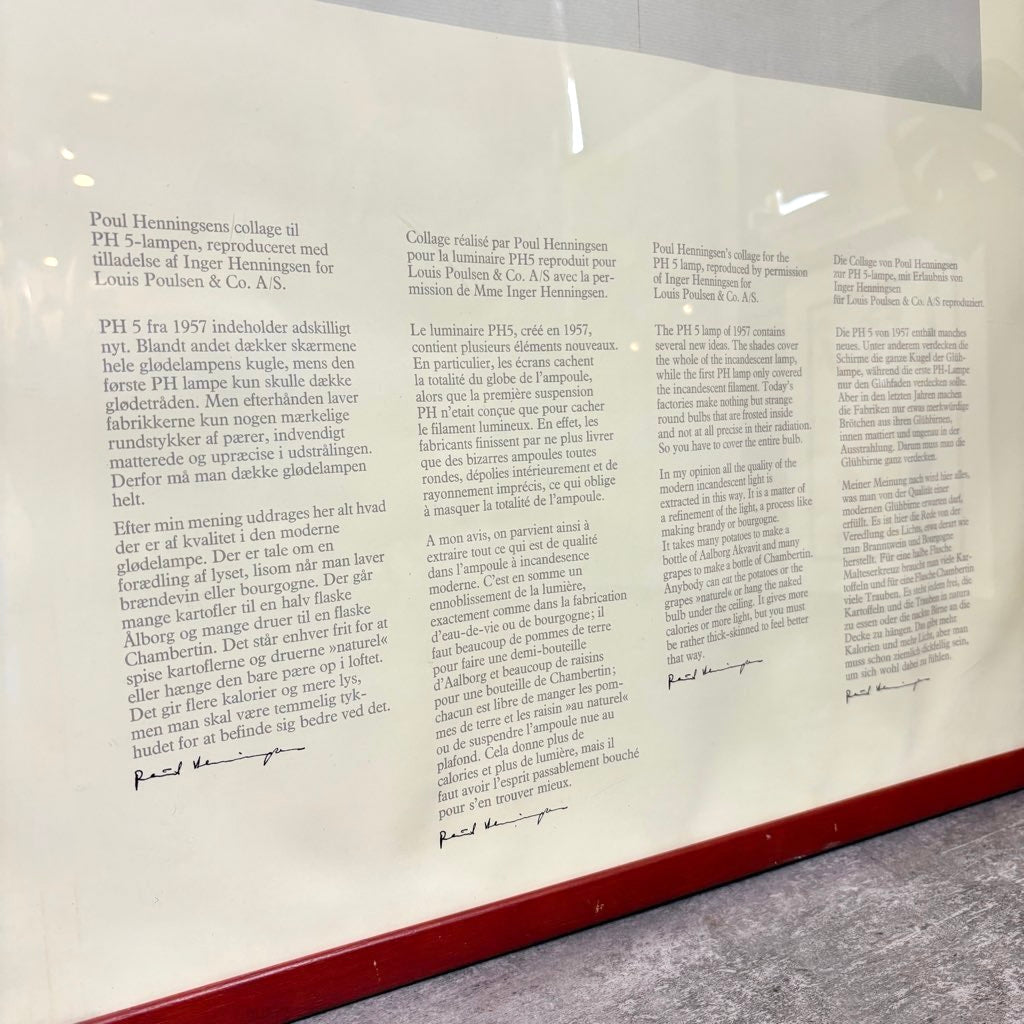 Poul Henningsens collage til
PH 5-lampen, reproduceret med
tilladelse af Inger Henningsen for
Louis Poulsen & Co. A/S.
PH 5 fra 1957 indeholder adskilligt
nyt. Blandt andet dækker skærmene
hele glødelampens kugle, mens den
første PH lampe kun skulle dække
glødetråden. Men efterhånden laver
fabrikkerne kun nogen mærkelige
rundstykker af pærer, indvendigt
matterede og upræcise i udstrålingen.
Derfor må man dække glødelampen
helt.
Efter min mening uddrages her alt hvad
der er af kvalitet i den moderne
glødelampe. Der er tale om en
forædling af lyset, lisom når man laver
brændevin eller bourgogne. Der går
mange kartofler til en halv flaske
Ålborg og mange druer til en flaske
Chambertin. Det står enhver frit for at
spise kartoflerne og druerne »naturel«
eller hænge den bare pære op i loftet.
Det gir flere kalorier og mere lys,
men man skal være temmelig tyk-
hudet for at befinde sig bedre ved det.
Poul Henningsen
Collage réalisé par Poul Henningsen
pour la luminaire PH5 reproduit pour
Louis Poulsen & Co. A/S avec la per-
mission de Mme Inger Henningsen.
Le luminaire PH5, créé en 1957,
contient plusieurs éléments nouveaux.
En particulier, les écrans cachent
la totalité du globe de l'ampoule,
alors que la première suspension
PH n'etait conçue que pour cacher
le filament lumineux. En effet, les
fabricants finissent par ne plus livrer
que des bizarres ampoules toutes
rondes, dépolies intérieurement et de
rayonnement imprécis, ce qui oblige
à masquer la totalité de l'ampoule.
A mon avis, on parvient ainsi à
extraire tout ce qui est de qualité
dans l'ampoule à incandesence
moderne. C'est en somme un
ennoblissement de la lumière,
exactement comme dans la fabrication
d'eau-de-vie ou de bourgogne; il
faut beaucoup de pommes de terre
pour faire une demi-bouteille
d'Aalborg et beaucoup de raisins
pour une bouteille de Chambertin;
chacun est libre de manger les pom-
mes de terre et les raisin »au naturel«
ou de suspendre l'ampoule nue au
plafond. Cela donne plus de
calories et plus de lumière, mais il
faut avoir l'esprit passablement bouché
pour s'en trouver mieux.
Poul Henningsen
Poul Henningsen's collage for the
PH 5 lamp, reproduced by permission
of Inger Henningsen for
Louis Poulsen & Co. A/S.
The PH 5 lamp of 1957 contains
several new ideas. The shades cover
the whole of the incandescent lamp,
while the first PH lamp only covered
the incandescent filament. Today's
factories make nothing but strange
round bulbs that are frosted inside
and not at all precise in their radiation.
So you have to cover the entire bulb.
In my opinion all the quality of the
modern incandescent light is
extracted in this way. It is a matter of
a refinement of the light, a process like
making brandy or bourgogne.
It takes many potatoes to make a
bottle of Aalborg Akvavit and many
grapes to make a bottle of Chambertin.
Anybody can eat the potatoes or the
grapes »naturel« or hang the naked
bulb under the ceiling. It gives more
calories or more light, but you must
be rather thick-skinned to feel better
that way.
Poul Henningsen
Die Collage von Poul Henningsen
zur PH 5-lampe, mit Erlaubnis von
Inger Henningsen
für Louis Poulsen & Co. A/S reproduziert.
Die PH 5 von 1957 enthält manches
neues. Unter anderem verdecken die
Schirme die ganze Kugel der Glüh-
lampe, während die erste PH-Lampe
nur den Glühfaden verdecken sollte.
Aber in den letzten Jahren machen
die Fabriken nur etwas merkwürdige
Brötchen aus ihren Glühbirnen,
innen mattiert und ungenau in der
Ausstrahlung. Darum muss man die
Glühbirne ganz verdecken.
Meiner Meinung nach wird hier alles,
was man von der Qualität einer
modernen Glühbirne erwarten darf,
erfüllt. Es ist hier die Rede von der
Veredlung des Lichts, etwa derart wie
man Branntwein und Bourgogne
herstellt. Für eine halbe Flasche
Malteserkreuz braucht man viele Kar-
toffeln und für eine Flasche Chambertin
viele Trauben. Es steht jedem frei, die
Kartoffeln und die Trauben in natura
zu essen oder die nackte Birne an die
Decke zu hängen. Das gibt mehr
Kalorien und mehr Licht, aber man
muss schon ziemlich dickfellig sein,
um sich wohl dabei zu fühlen.
Poul Henningsen